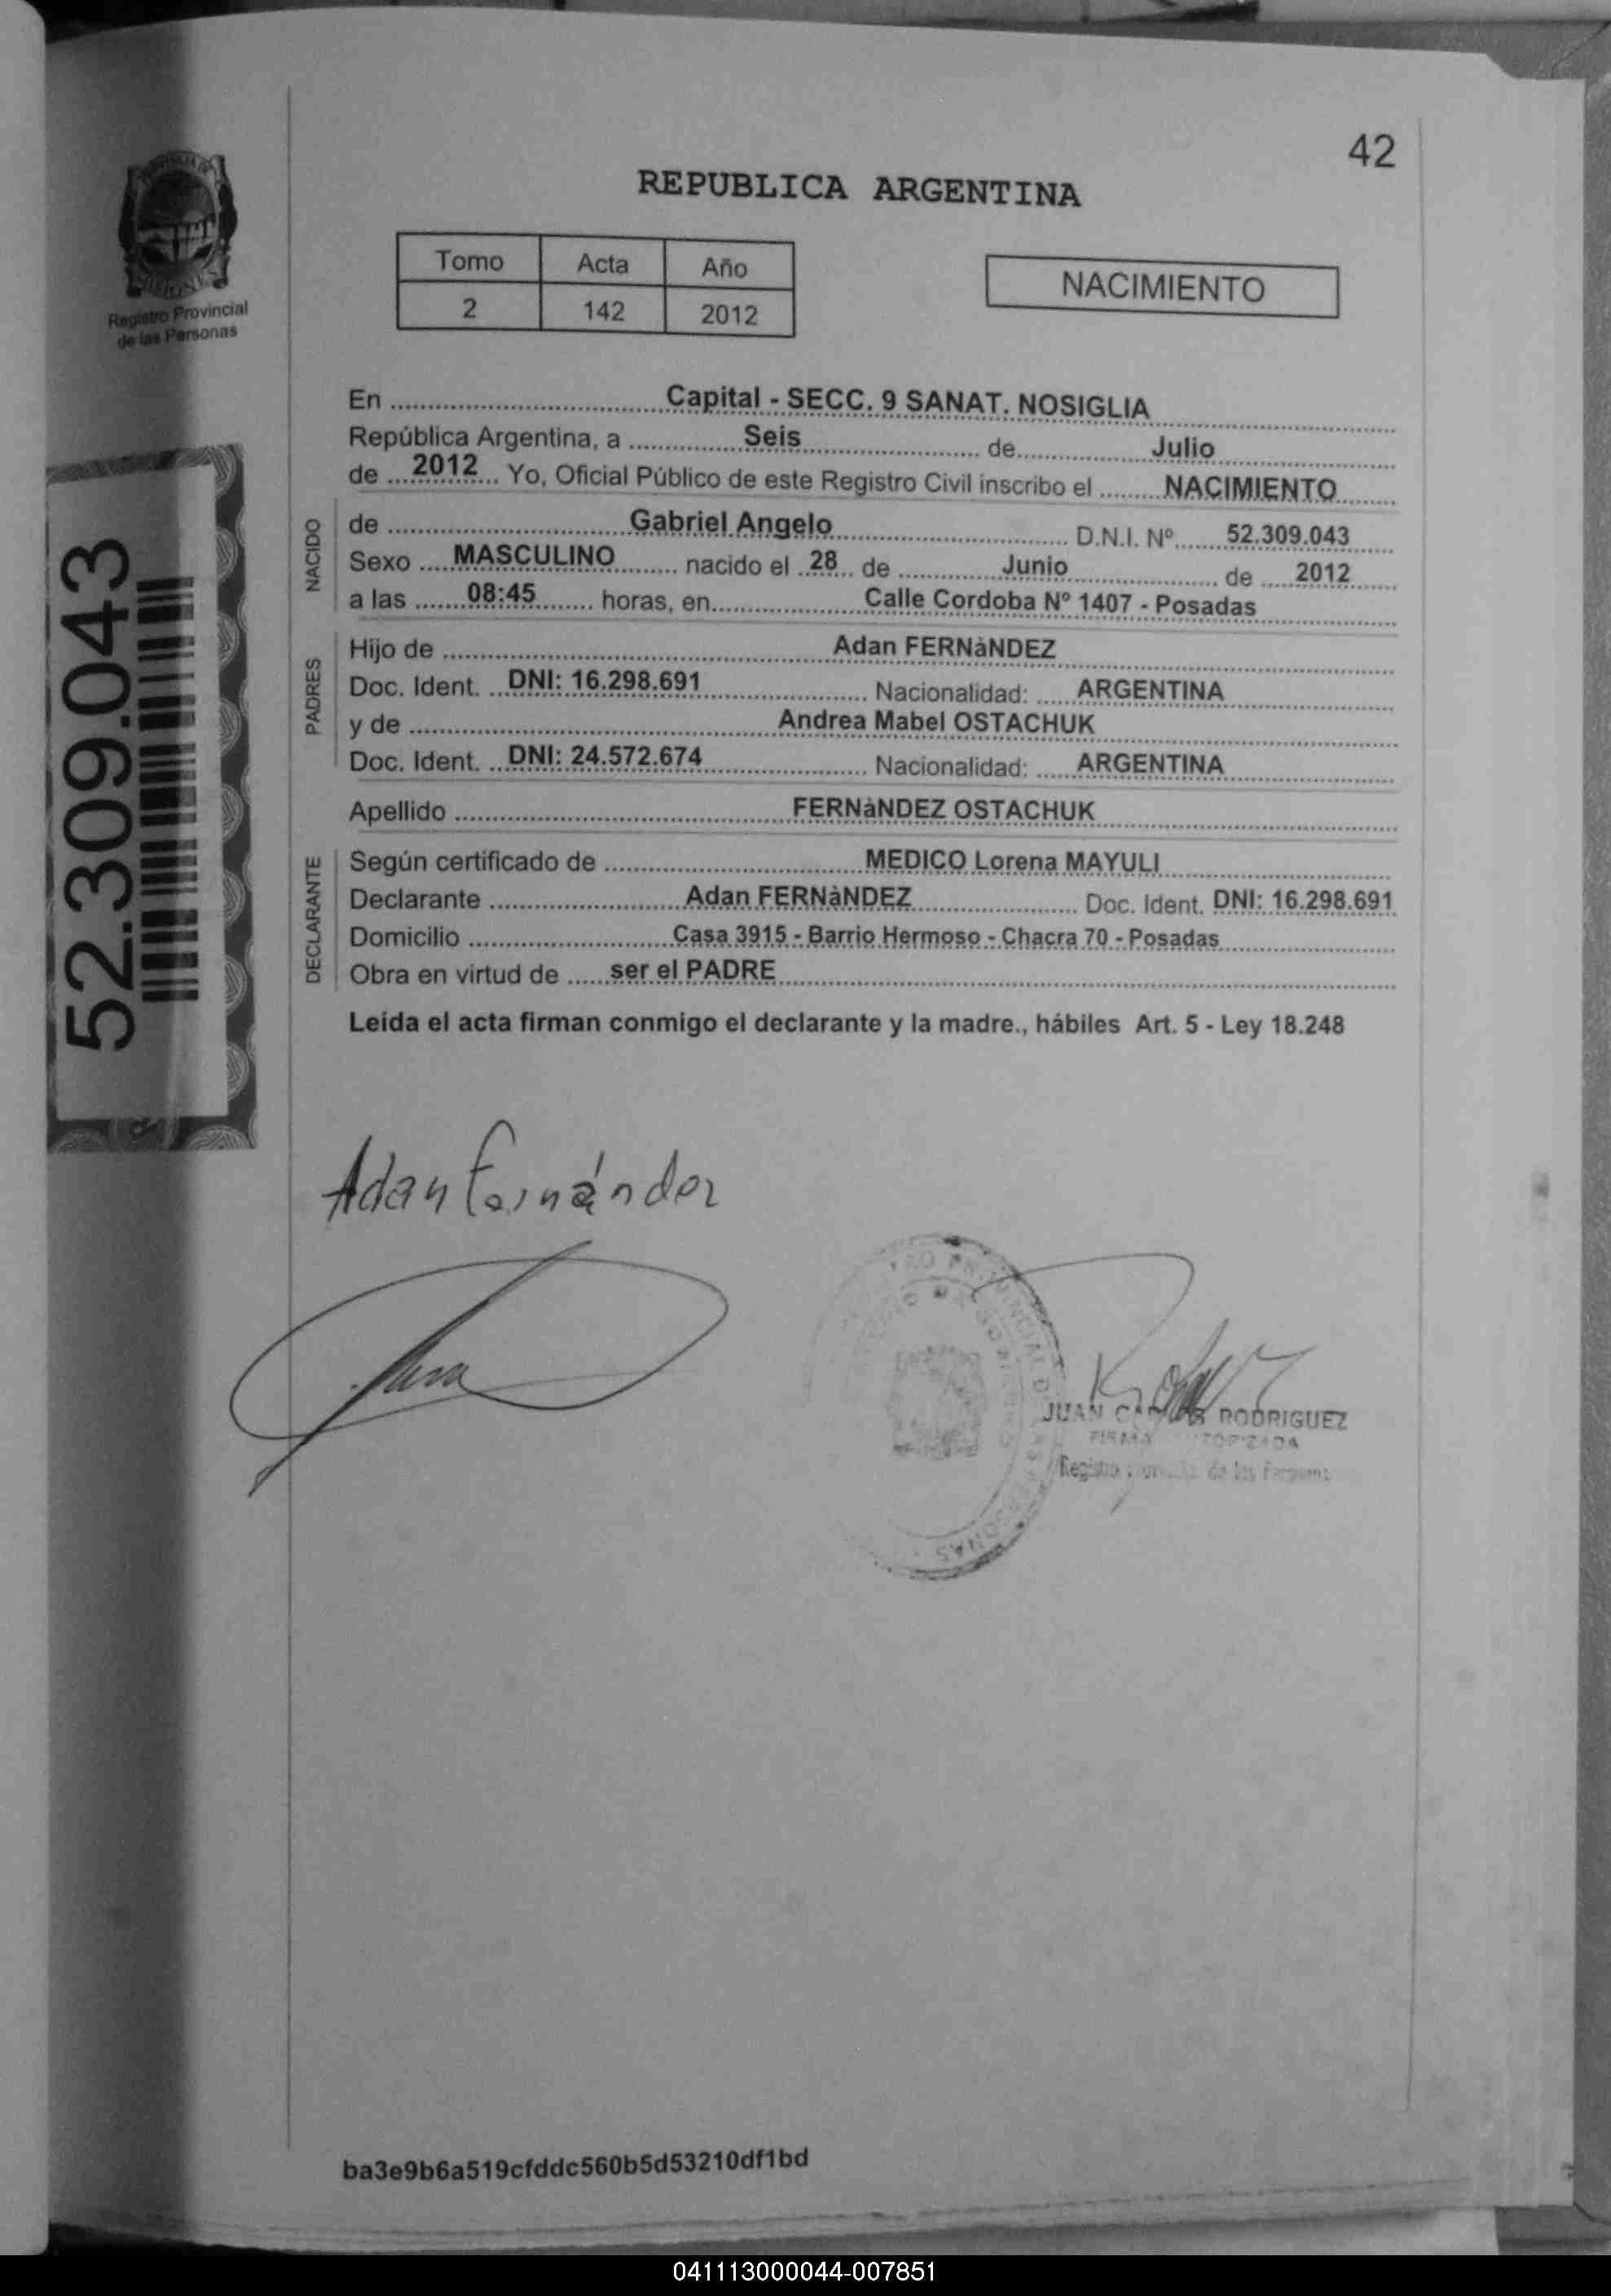 42
REPUBLICA ARGENTINA
Tomo Acta Año
2 142 2012
NACIMIENTO
PROVINCIA DE
MISIONES
Registro Provincial
de las Personas
52.309.043
En Capital - SECC. 9 SANAT. NOSIGLIA
República Argentina, a Seis de Julio
de 2012 Yo, Oficial Público de este Registro Civil inscribo el NACIMIENTO
NACIDO
de Gabriel Angelo D.N.I. Nº 52.309.043
Sexo MASCULINO nacido el 28 de Junio de 2012
a las 08:45 horas, en Calle Cordoba Nº 1407 - Posadas
PADRES
Hijo de Adan FERNàNDEZ
Doc. Ident. DNI: 16.298.691 Nacionalidad: ARGENTINA
y de Andrea Mabel OSTACHUK
Doc. Ident. DNI: 24.572.674 Nacionalidad: ARGENTINA
Apellido FERNàNDEZ OSTACHUK
DECLARANTE
Según certificado de MEDICO Lorena MAYULI
Declarante Adan FERNàNDEZ Doc. Ident. DNI: 16.298.691
Domicilio Casa 3915 - Barrio Hermoso - Chacra 70 - Posadas
Obra en virtud de ser el PADRE
Leida el acta firman conmigo el declarante y la madre., hábiles Art. 5 - Ley 18.248
Adan Fernández
JUAN RODRIGUEZ
FIRMA
Registro de las
PERSONAS
ba3e9b6a519cfddc560b5d53210df1bd
041113000044-007851